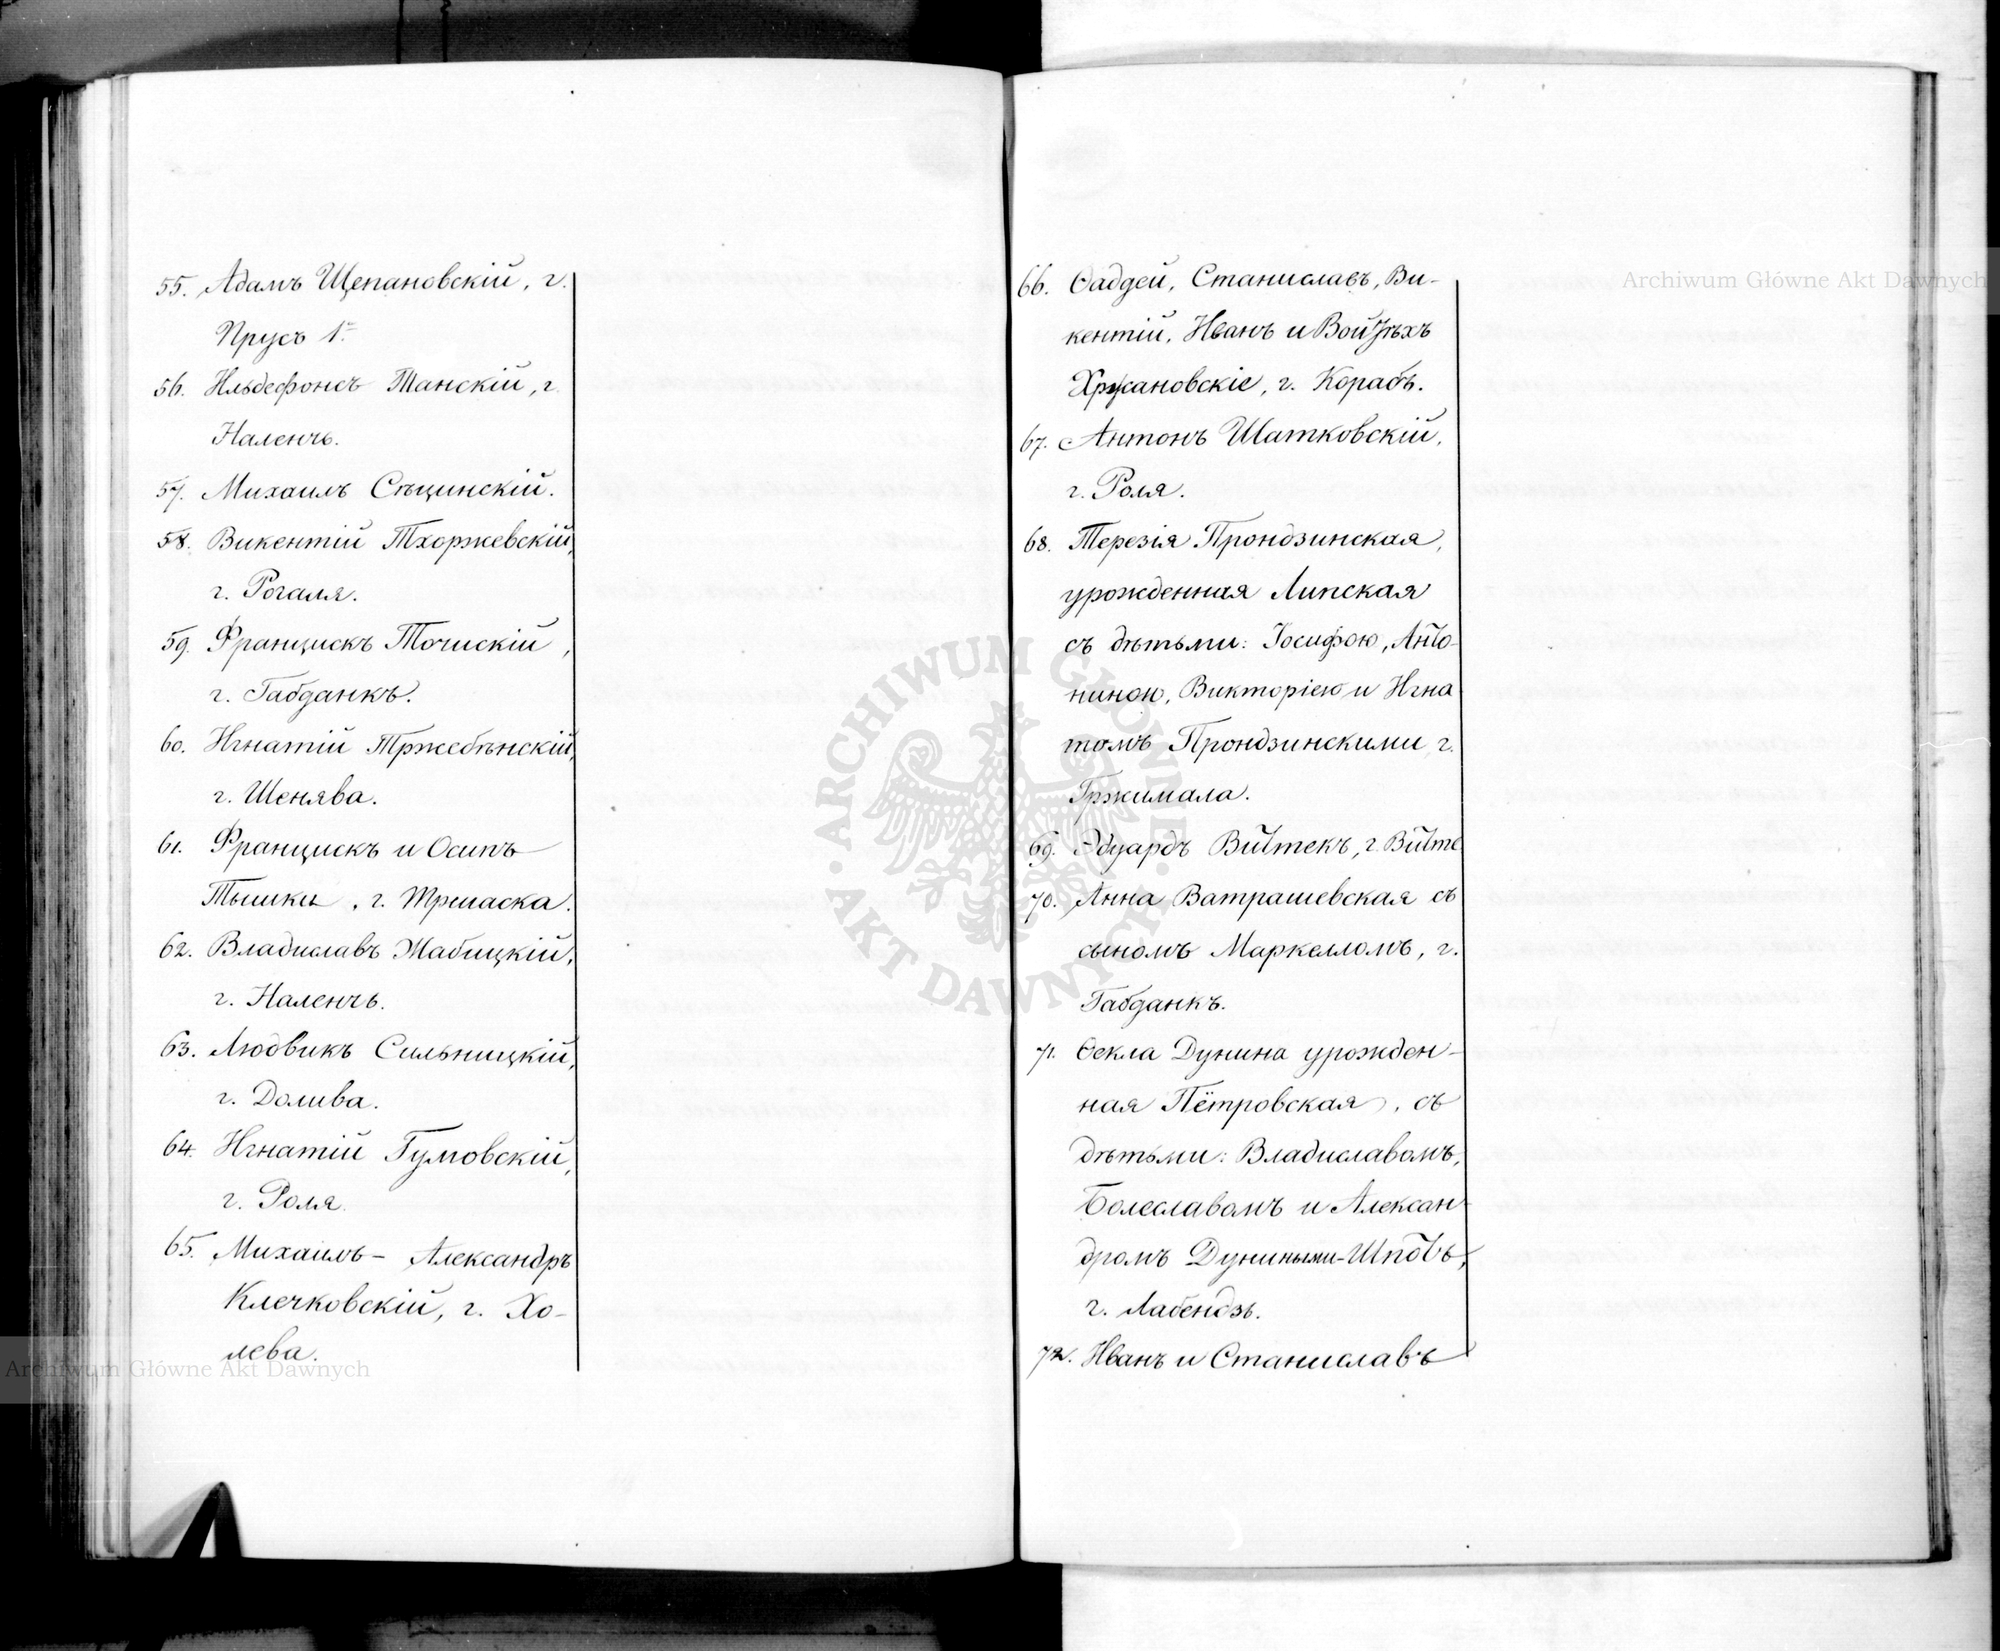 55. Адамъ Щепановскій, г.
Прусъ 1º
56. Ильдефонсъ Танскій, г.
Наленчъ.
57. Михаилъ Сѣцинскій.
58. Викентій Тхоржевскій,
г. Рогаля.
59. Францискъ Точискій,
г. Габданкъ.
60. Игнатій Тржебѣнскій,
г. Шенява.
61. Францискъ и Осипъ
Тышки, г. Тршаска.
62. Владиславъ Жабицкій,
г. Наленчъ.
63. Людвикъ Сильницкій,
г. Долива.
64. Игнатій Гумовскій,
г. Роля.
65. Михаилъ - Александръ
Клечковскій, г. Хо-
лева.
66. Ѳаддей, Станиславъ, Ви-
кентій, Иванъ и Войцѣхъ
Хржановскіе, г. Корабъ.
67. Антонъ Шатковскій,
г. Роля.
68. Терезія Прондзинская,
урожденная Липская
съ дѣтьми: Іосифою, Анто-
ниною, Викторіею и Игна
томъ Прондзинскими, г.
Гржимала.
69. Эдуардъ г.
70. Анна Ватрашевская съ
сыномъ Маркелломъ, г.
Габданкъ.
71. Ѳекла Дунина урожден-
ная Пётровская, съ
дѣтьми: Владиславомъ,
Болеславомъ и Алексан-
дромъ Дуниными-Шпотъ,
г. Лабендзь.
72. Иванъ и Станиславъ
Archiwum Główne Akt Dawnych
Archiwum Główne Akt Dawnych
ARCHIWUM GŁÓWNE AKT DAWNYCH